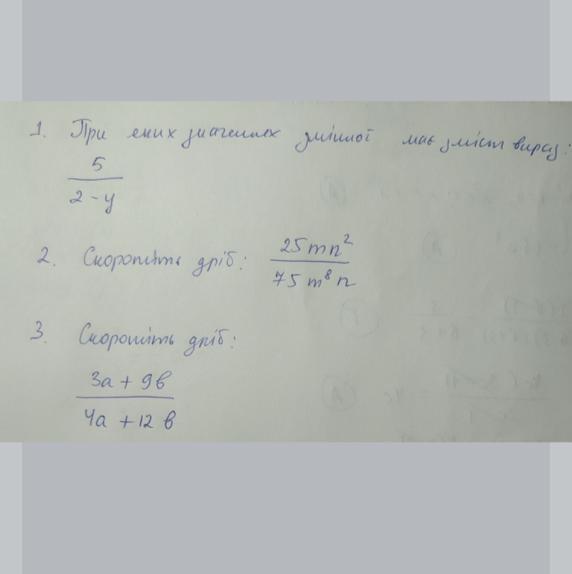 1. При яких значеннях змінної має зміст вираз:
5
2 - y
2. Скоротіть дріб: 25mn²
75m⁸n
3. Скоротіть дріб:
3a + 9b
4a + 12b